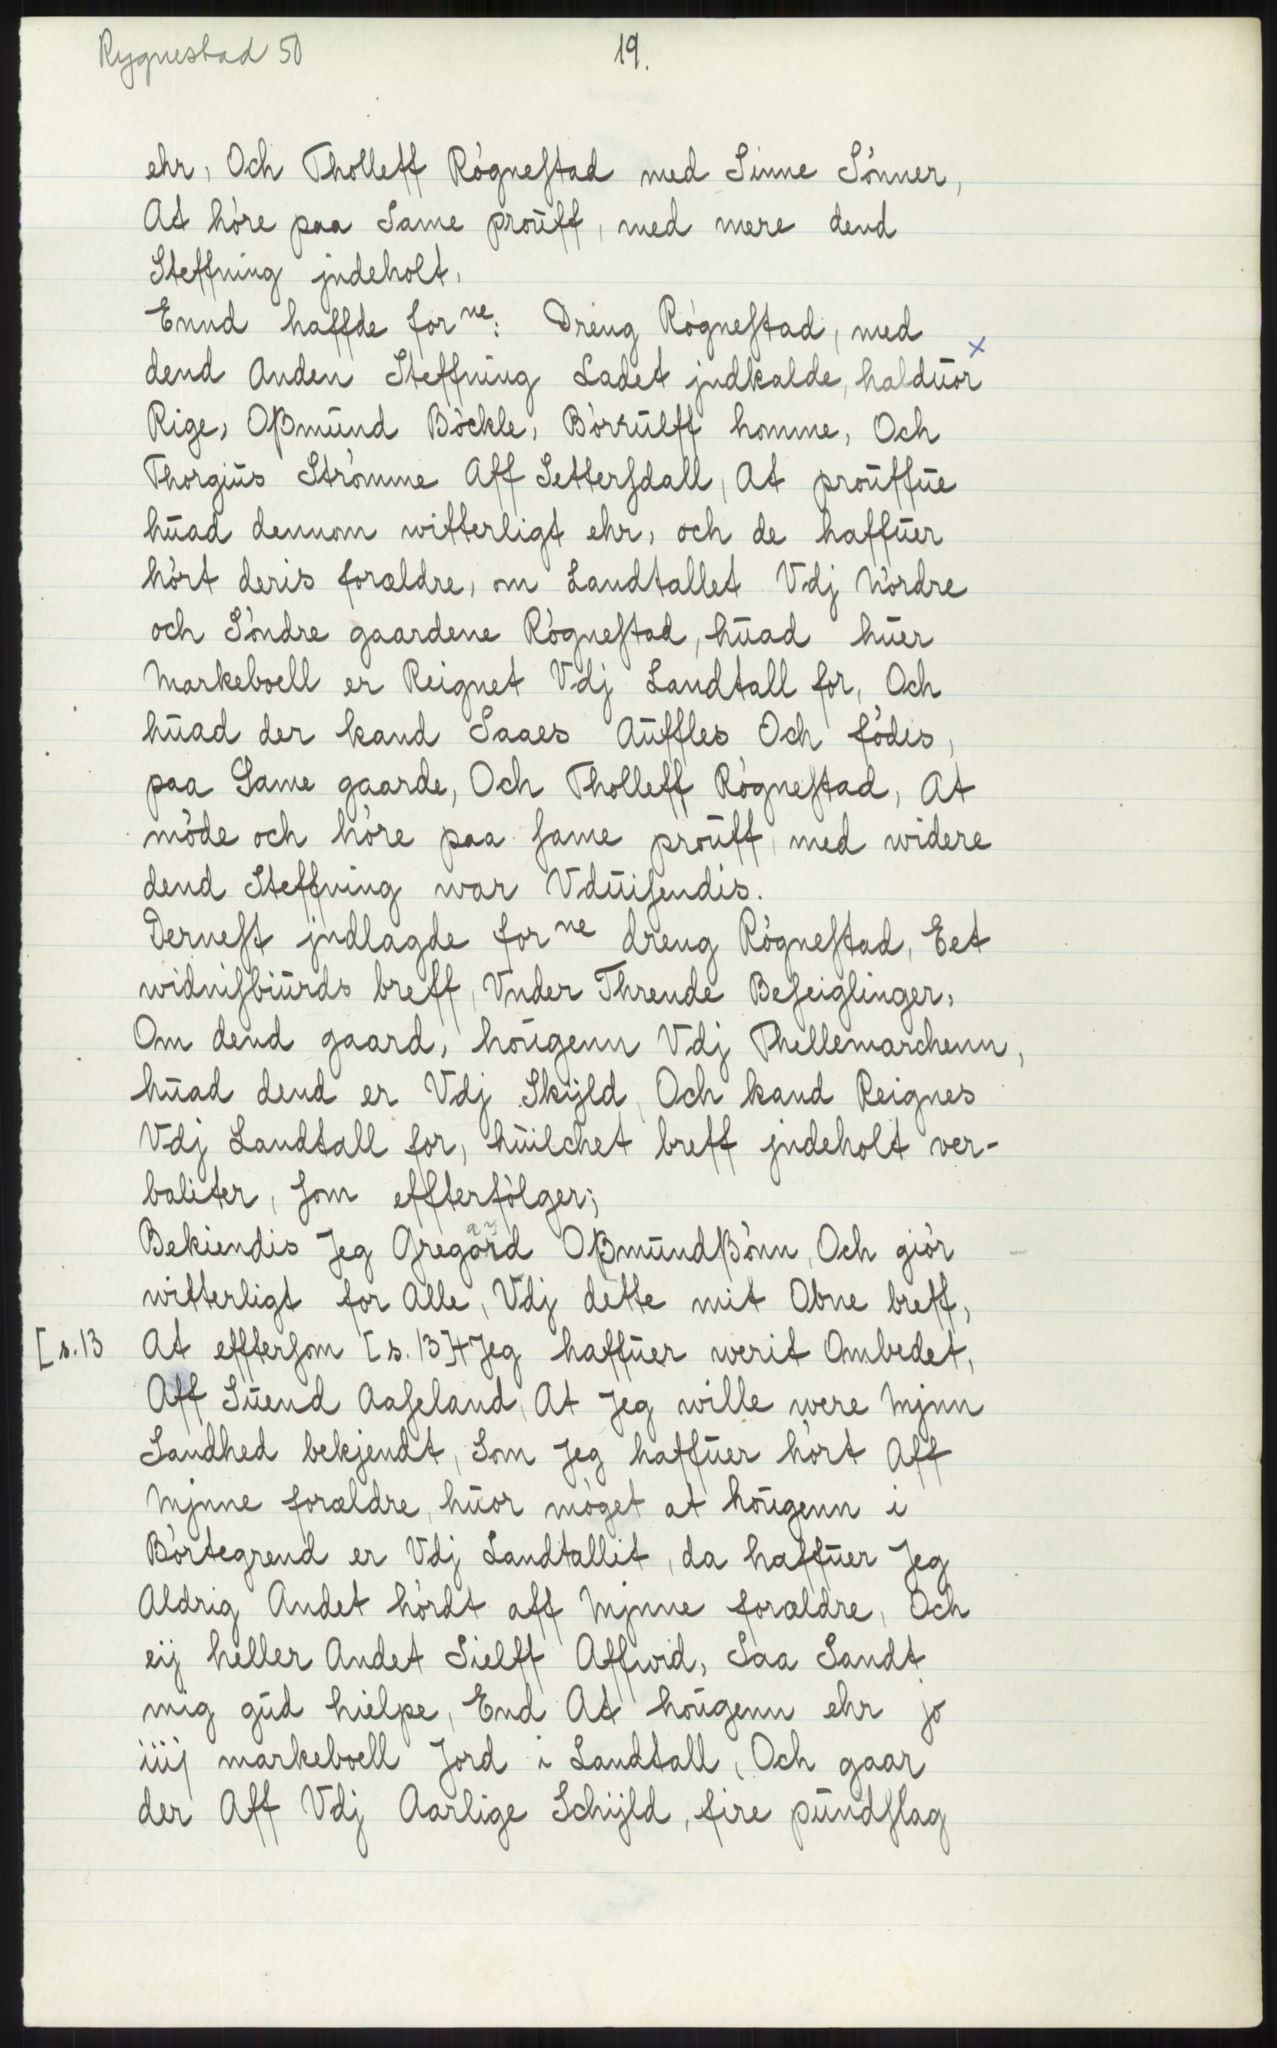 Rygnestad 50
19.
ehr, Och Tholleff Rögneſtad med Sinne Sönner,
At höre paa Same proūff, med mere dend
Steffning jndeholt,
Ennd haffde for ne: Dreng Rögneſtad, med
dend Anden Steffning Ladet jndkalde, haldūor x
Rige, Oßmūnd Böckle, Börrūlff homme, Och
Thorgiūs Strömme Aff Setterſdall, At proūffūe
hūad dennom witterligt ehr, och de haffūer
hört deris forældre, om Landtallet Vdj Nördre
och Söndre gaardene Rögneſtad, hūad hūer
Markeboell er Reignet Vdj Landtall for, Och
hūad der kand Saaes Aūffles Och födis,
paa Same gaarde, Och Tholleff Rögneſtad, At
möde och höre paa ſame proūff, med widere
dend Steffning war Vdūiſendis.
Derneſt jndlagde for ne dreng Rögneſtad, Eet
widniſbiūrds breff, Vnder Thrende Beſeiglinger,
Om dend gaard, hoūgenn Vdj Thellemarchenn,
hūad dend er Vdj Skÿld, Och kand Reignes
Vdj Landtall for, hūilchet breff jndeholt ver-
baliter, ſom effterfölger;
Bekiendis Jeg Gregård Oßmūndßönn, Och giör
witterligt for Alle, Vdj dette mit Obne breff,
[s. 13 At effterſom [s. 13] Jeg haffūer werit Ombedet,
Aff Sūend Aaſeland, At Jeg wille were Mjnn
Sandhed bekjendt, Som Jeg haffūer hört Aff
Mjnne forældre, hūor möget at hoūgenn i
Börtegrend er Vdj Landtallit, da haffūer Jeg
Aldrig Andet hördt aff Mjnne forældre, Och
eij heller Andet Sielff Affwid, Saa Sandt
mig gūd hielpe, End At hoūgenn ehr jo
iiij markeboell Jord i Landtall, Och gaar
der Aff Vdj Aarlige Schÿld, fire pūndſlag